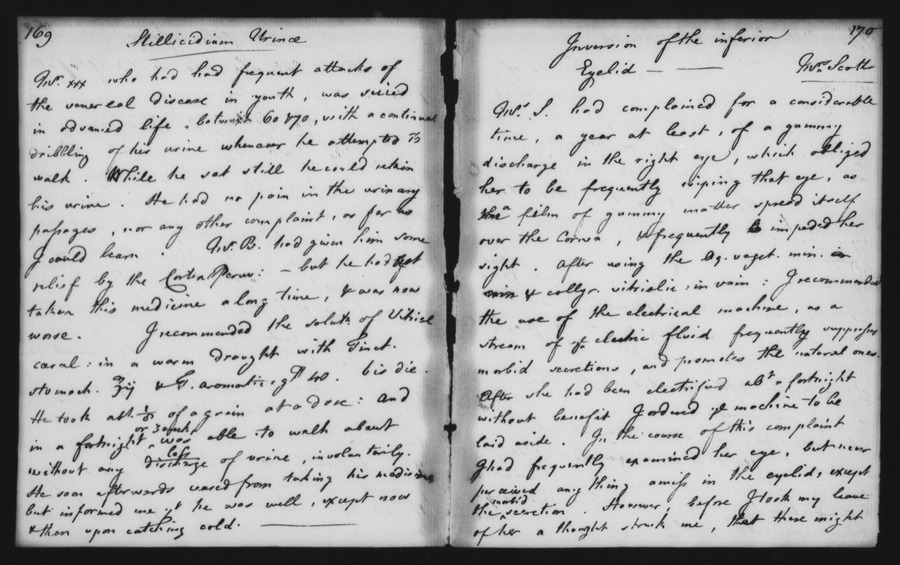 169
Stillicidium Urinæ
Mr. xxx who had had frequent attacks of
the venereal Disease in youth, was seized
in advanced life, between 60 & 70, with a continual
dribbling of his urine whenever he attempted to
walk. While he sat still he could retain
his urine. He had no pain in the urinary
passages, nor any other complaint, as far as
I could learn. Mr. B. had given him some
relief by the Cort: Peruv: – but he had not
taken this medicine a long time, & was now
worse. I recommended the solutn of Vitriol
cœrul: in a warm draught with Tinct.
stomach. ʒij & T. aromatic: gtt 40. bis die.
He took abt of a grain at a dose: and
in a fortnight or 3 weeks was able to walk about
without any loss discharge of urine, involuntarily.
He soon afterwards ceased from taking his medicine
but informed me yt he was well, except now
& then upon catching cold.
170
Inversion of the inferior
Eyelid — Mrs. Scott
Mrs. S. had complained for a considerable
time, a year at least, of a gummy
discharge in the right eye, which obliged
her to be frequently wiping that eye, as
a film of gummy matter spread itself
over the Cornea, & frequently impeded her
sight. After using the Aq. veget. min.
& collyr. vitriolic: in vain: I recommended
the use of the electrical machine, as a
stream of ye electric fluid frequently suppresses
morbid secretions, and promotes the natural ones.
After she had been electrified abt a fortnight
without benefit I ordered ye machine to be
laid aside. In the course of this complaint
I had frequently examined her eye, but never
perceived any thing amiss in the eyelids, except
the morbid secretion. However, before I took my leave
of her a thought struck me, that there might